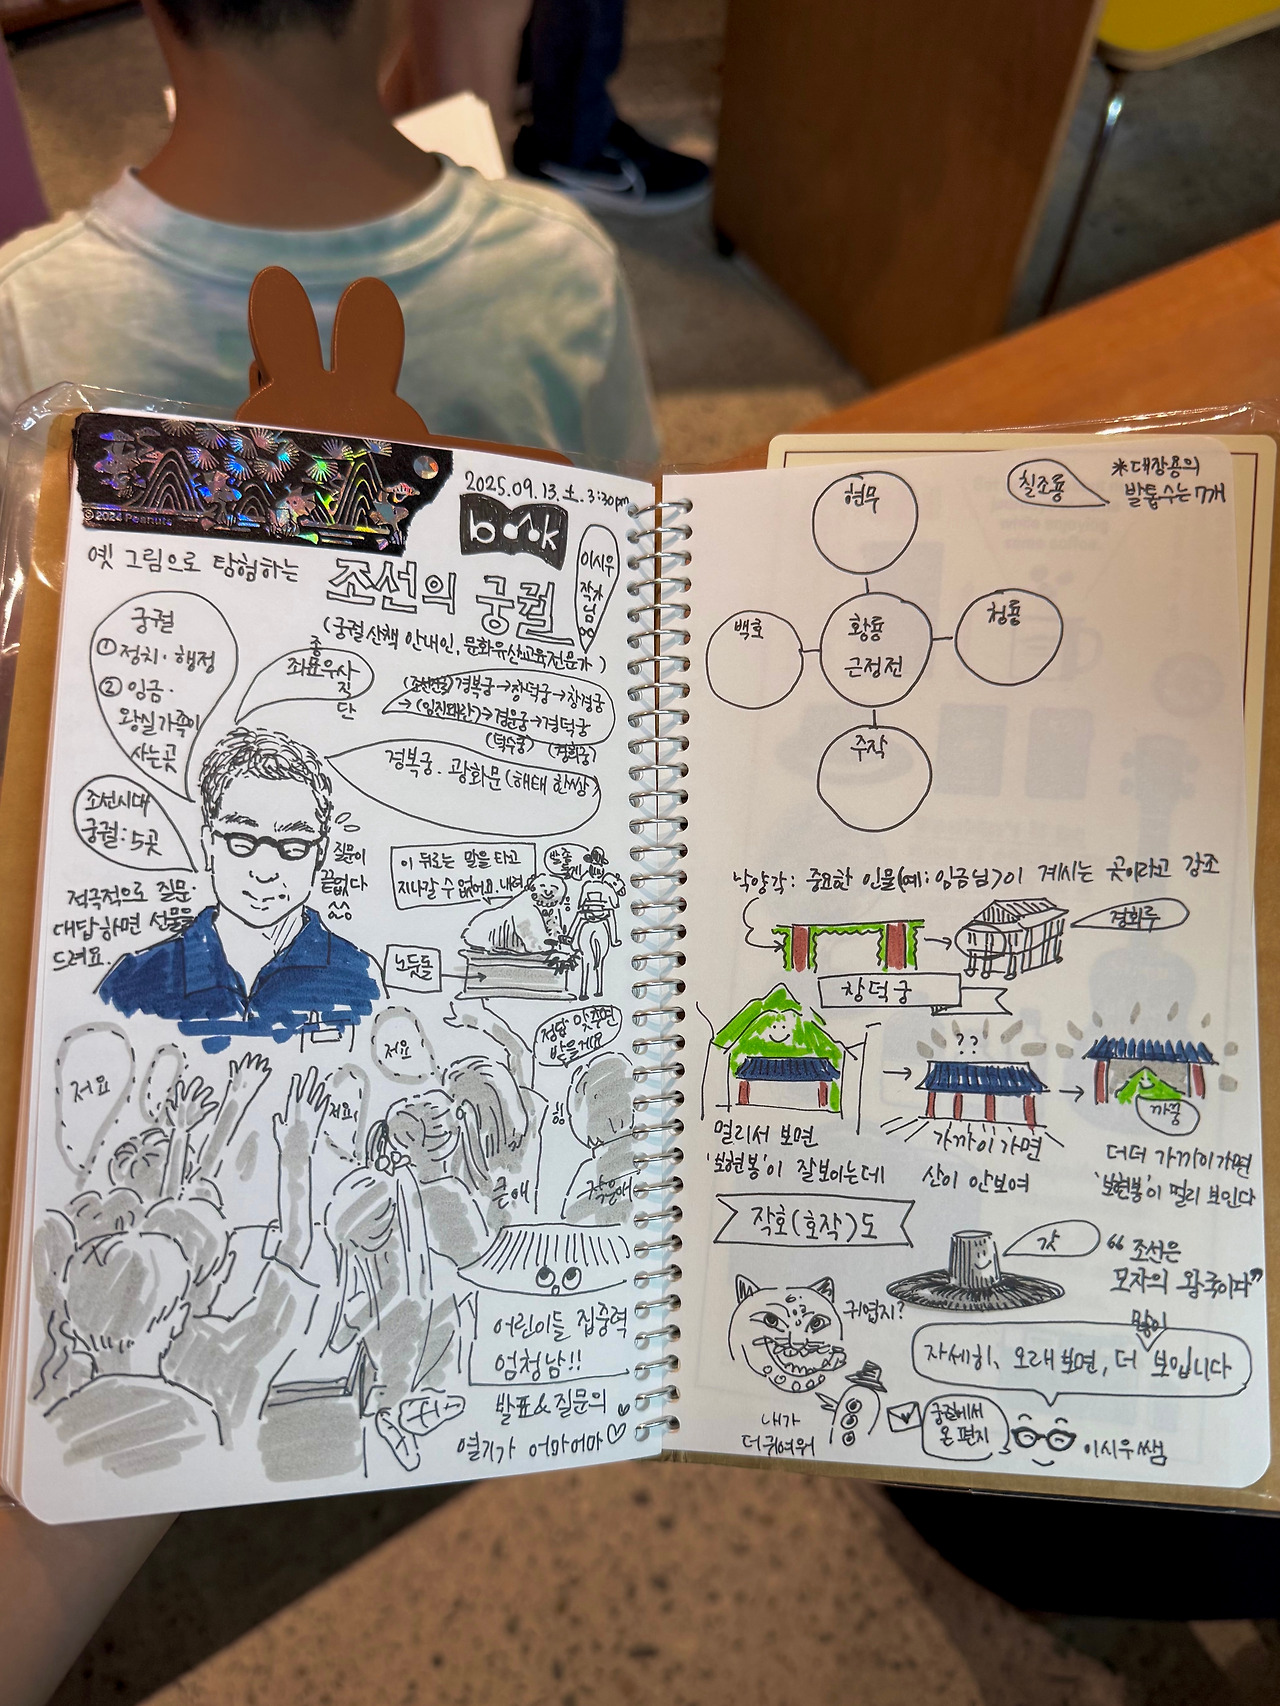 © 2024 Peanuts
2025.09.13.土.3:30pm
book
이시우
작가
님
옛 그림으로 탐험하는
조선의 궁궐
(궁궐산책 안내인, 문화유산교육전문가)
궁궐
① 정치·행정
② 임금·
왕실가족이
사는곳
종
좌묘우사
직
단
(조선건국) 경복궁→창덕궁→창경궁
→(임진왜란)→경운궁→경덕궁
(덕수궁) (경희궁)
경복궁. 광화문(해태 한쌍)
조선시대
궁궐: 5곳
질문이
끝없다
적극적으로 질문·
대답하면 선물을
드려요.
이 뒤로는 말을 타고
지나갈 수 없어요. 내려
노둣돌
정답 맞추면
받을게요
저요
저요
저요
힝
어린이들 집중력
엄청남!!
발표&질문의
열기가 어마어마♡
현무
백호
황룡
근정전
청룡
주작
칠조룡
*대장용의
발톱수는 7개
낙양각: 중요한 인물(예: 임금님)이 계시는 곳이라고 강조
경회루
창덕궁
멀리서 보면
'보현봉'이 잘보이는데
??
가까이 가면
산이 안보여
까꿍
더더 가까이가면
'보현봉'이 떨리 보인다
작호(호작)도
갓
“조선은
모자의 왕국이다”
귀엽지?
내가
더귀여워
많이
자세히, 오래 보면, 더 보입니다
궁궐에서
온 편지
이시우쌤